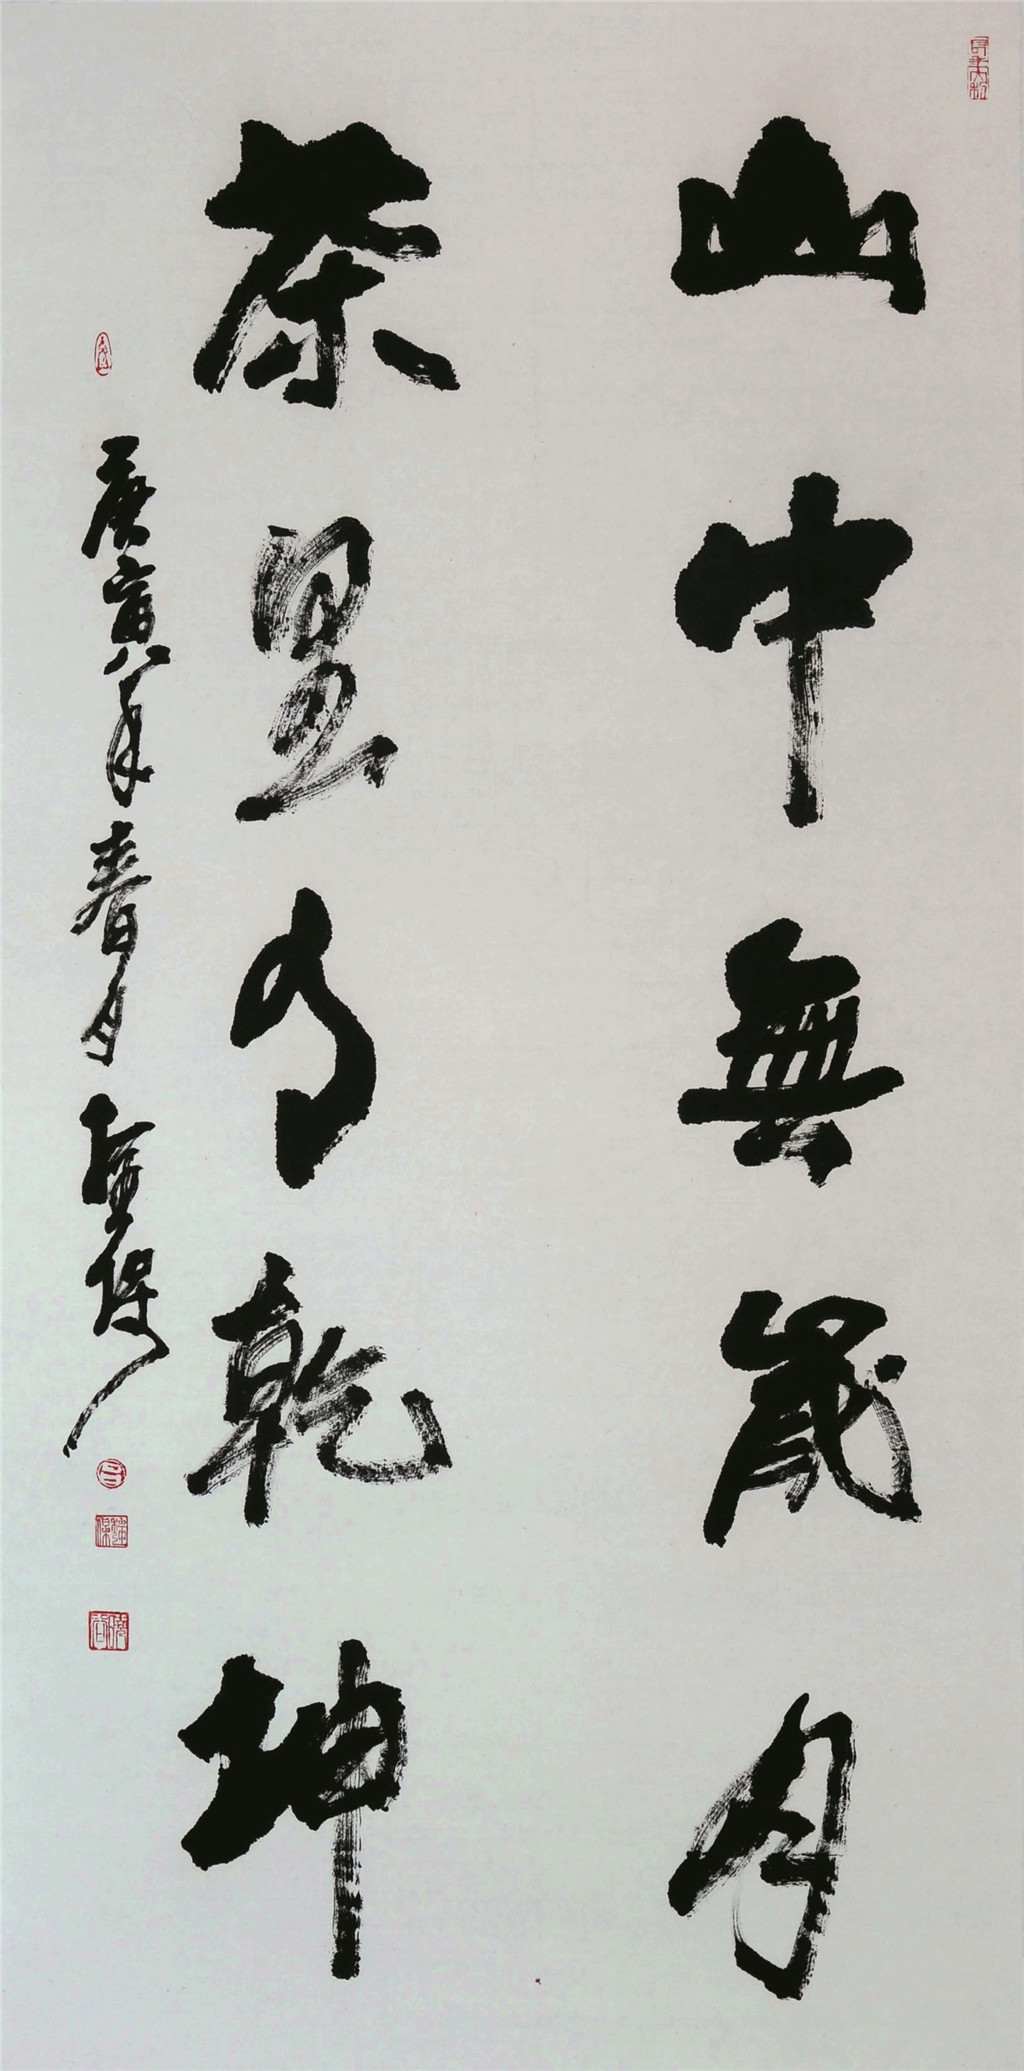 山中無歲月
茶里有乾坤
庚寅年春月